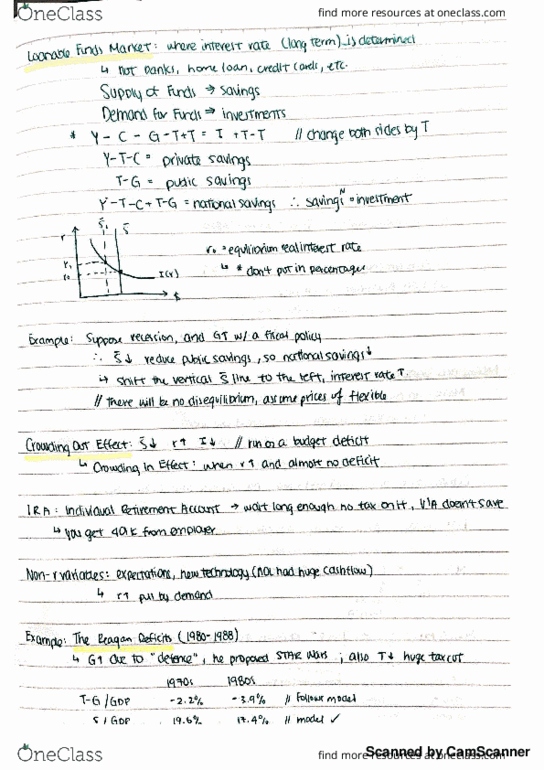 OneClass
find more resources at oneclass.com
Loanable Funds Market: where interest rate (long term) is determined
↳ not banks, home loan, credit cards, etc.
Supply of Funds → savings
Demand for Funds ⇒ investments
* Y - C - G - T + T = I + T - T // change both sides by T
Y-T-C = private savings
T-G = public savings
Y-T-C+T-G = national savings ∴ savingsᴺ = investment
S̄₁ S̄
r
r₁
r₀
I(r)
r₀ = equilibrium real interest rate
↳ * don't put in percentages
Example: Suppose recession, and G↑ w/ a fiscal policy
∴ S̄↓ reduce public savings, so national savings↓
↳ shift the vertical S̄ line to the left, interest rate ↑
// there will be no disequilibrium, assume prices of flexible
Crowding Out Effect: S̄↓ r↑ I↓ // run on a budget deficit
↳ Crowding In Effect: when r↑ and almost no deficit
IRA: Individual Retirement Account → wait long enough no tax on it, doesn't save
↳ you get 401k from employer
Non-r variables: expectations, new technology ( had huge cashflow)
↳ r↑ pull by demand
Example: The Reagan Deficits (1980-1988)
↳ G↑ due to "defence", he proposed STAR Wars ; also T↓ huge tax cut
1970s 1980s
T-G/GDP -2.2% -3.9% // Follows model
S/GDP 19.6% 17.4% // model ✓
OneClass
find more resources at oneclass.com
Scanned by CamScanner